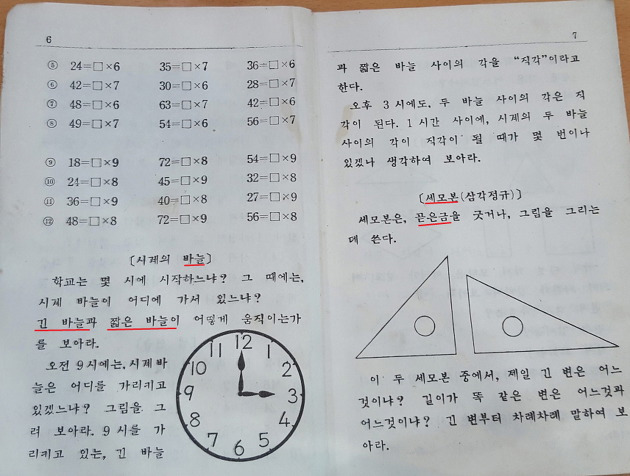 6
⑤ 24=□×6 35=□×7 36=□×6
⑥ 42=□×7 30=□×6 28=□×7
⑦ 48=□×6 63=□×7 42=□×6
⑧ 49=□×7 54=□×6 56=□×7
⑨ 18=□×9 72=□×8 54=□×9
⑩ 24=□×8 45=□×9 32=□×8
⑪ 36=□×9 40=□×8 27=□×9
⑫ 48=□×8 72=□×9 56=□×8
[시계의 바늘]
학교는 몇 시에 시작하느냐? 그 때에는,
시계 바늘이 어디에 가서 있느냐?
긴 바늘과 짧은 바늘이 어떻게 움직이는가
를 보아라.
오전 9시에는, 시계 바
늘은 어디를 가리키고
있겠느냐? 그림을 그
려 보아라. 9시를 가
리키고 있는, 긴 바늘
12
1
2
3
4
5
6
7
8
9
10
11
7
과 짧은 바늘 사이의 각을 “직각”이라고
한다.
오후 3시에도, 두 바늘 사이의 각은 직
각이 된다. 1시간 사이에, 시계의 두 바늘
사이의 각이 직각이 될 때가 몇 번이나
있겠나 생각하여 보아라.
[세모본(삼각정규)]
세모본은, 곧은금을 긋거나, 그림을 그리는
데 쓴다.
이 두 세모본 중에서, 제일 긴 변은 어느
것이냐? 길이가 똑 같은 변은 어느것과
어느것이냐? 긴 변부터 차례차례 말하여 보
아라.